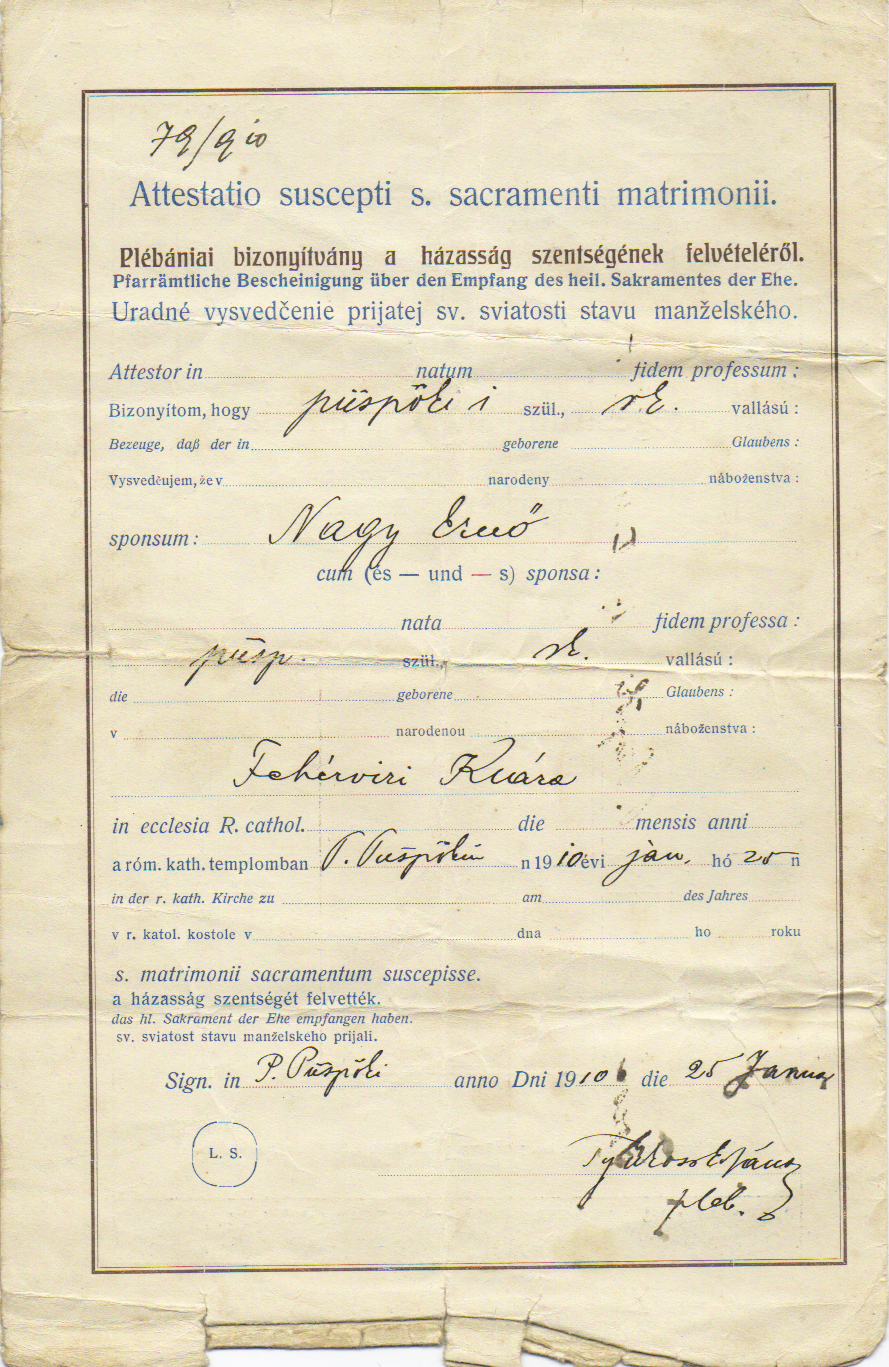 79/910
Attestatio suscepti s. sacramenti matrimonii.
Plébániai bizonyítvány a házasság szentségének felvételéről.
Pfarrämtliche Bescheinigung über den Empfang des heil. Sakramentes der Ehe.
Uradné vysvedčenie prijatej sv. sviatosti stavu manželského.
Attestor in natum fidem professum :
Bizonyítom, hogy püspöki i szül., rk. vallású :
Bezeuge, daß der in geborene Glaubens :
Vysvedčujem, že v narodeny náboženstva :
sponsum : Nagy Ernő
cum (és — und — s) sponsa :
nata fidem professa :
püsp. szül., rk. vallású :
die geborene Glaubens :
v narodenou náboženstva :
Fehérviri Klára
in ecclesia R. cathol. die mensis anni
a róm. kath. templomban P. Püspökin n 1910 évi jan. hó 25 n
in der r. kath. Kirche zu am des Jahres
v r. katol. kostole v dna ho roku
s. matrimonii sacramentum suscepisse.
a házasság szentségét felvették.
das hl. Sakrament der Ehe empfangen haben.
sv. sviatost stavu manželskeho prijali.
Sign. in P. Püspöki anno Dni 1910 die 25 Januar
L. S.
pleb.